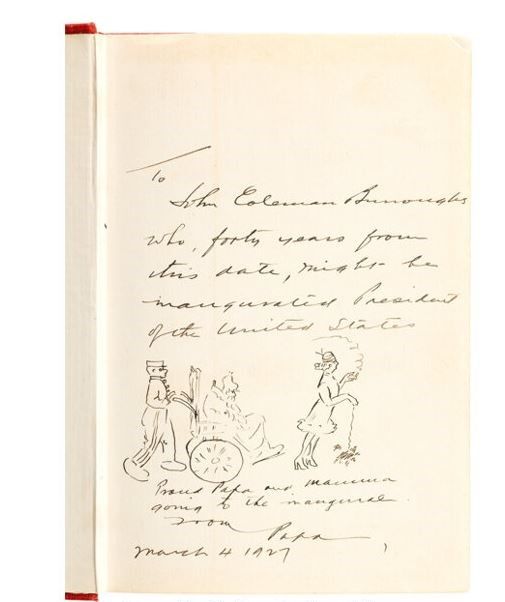 To
John Coleman Burroughs
who, forty years from
this date, might be
inaugurated President
of the United States
Proud Papa and mamma
going to the inaugural.
From
Papa
March 4 1927